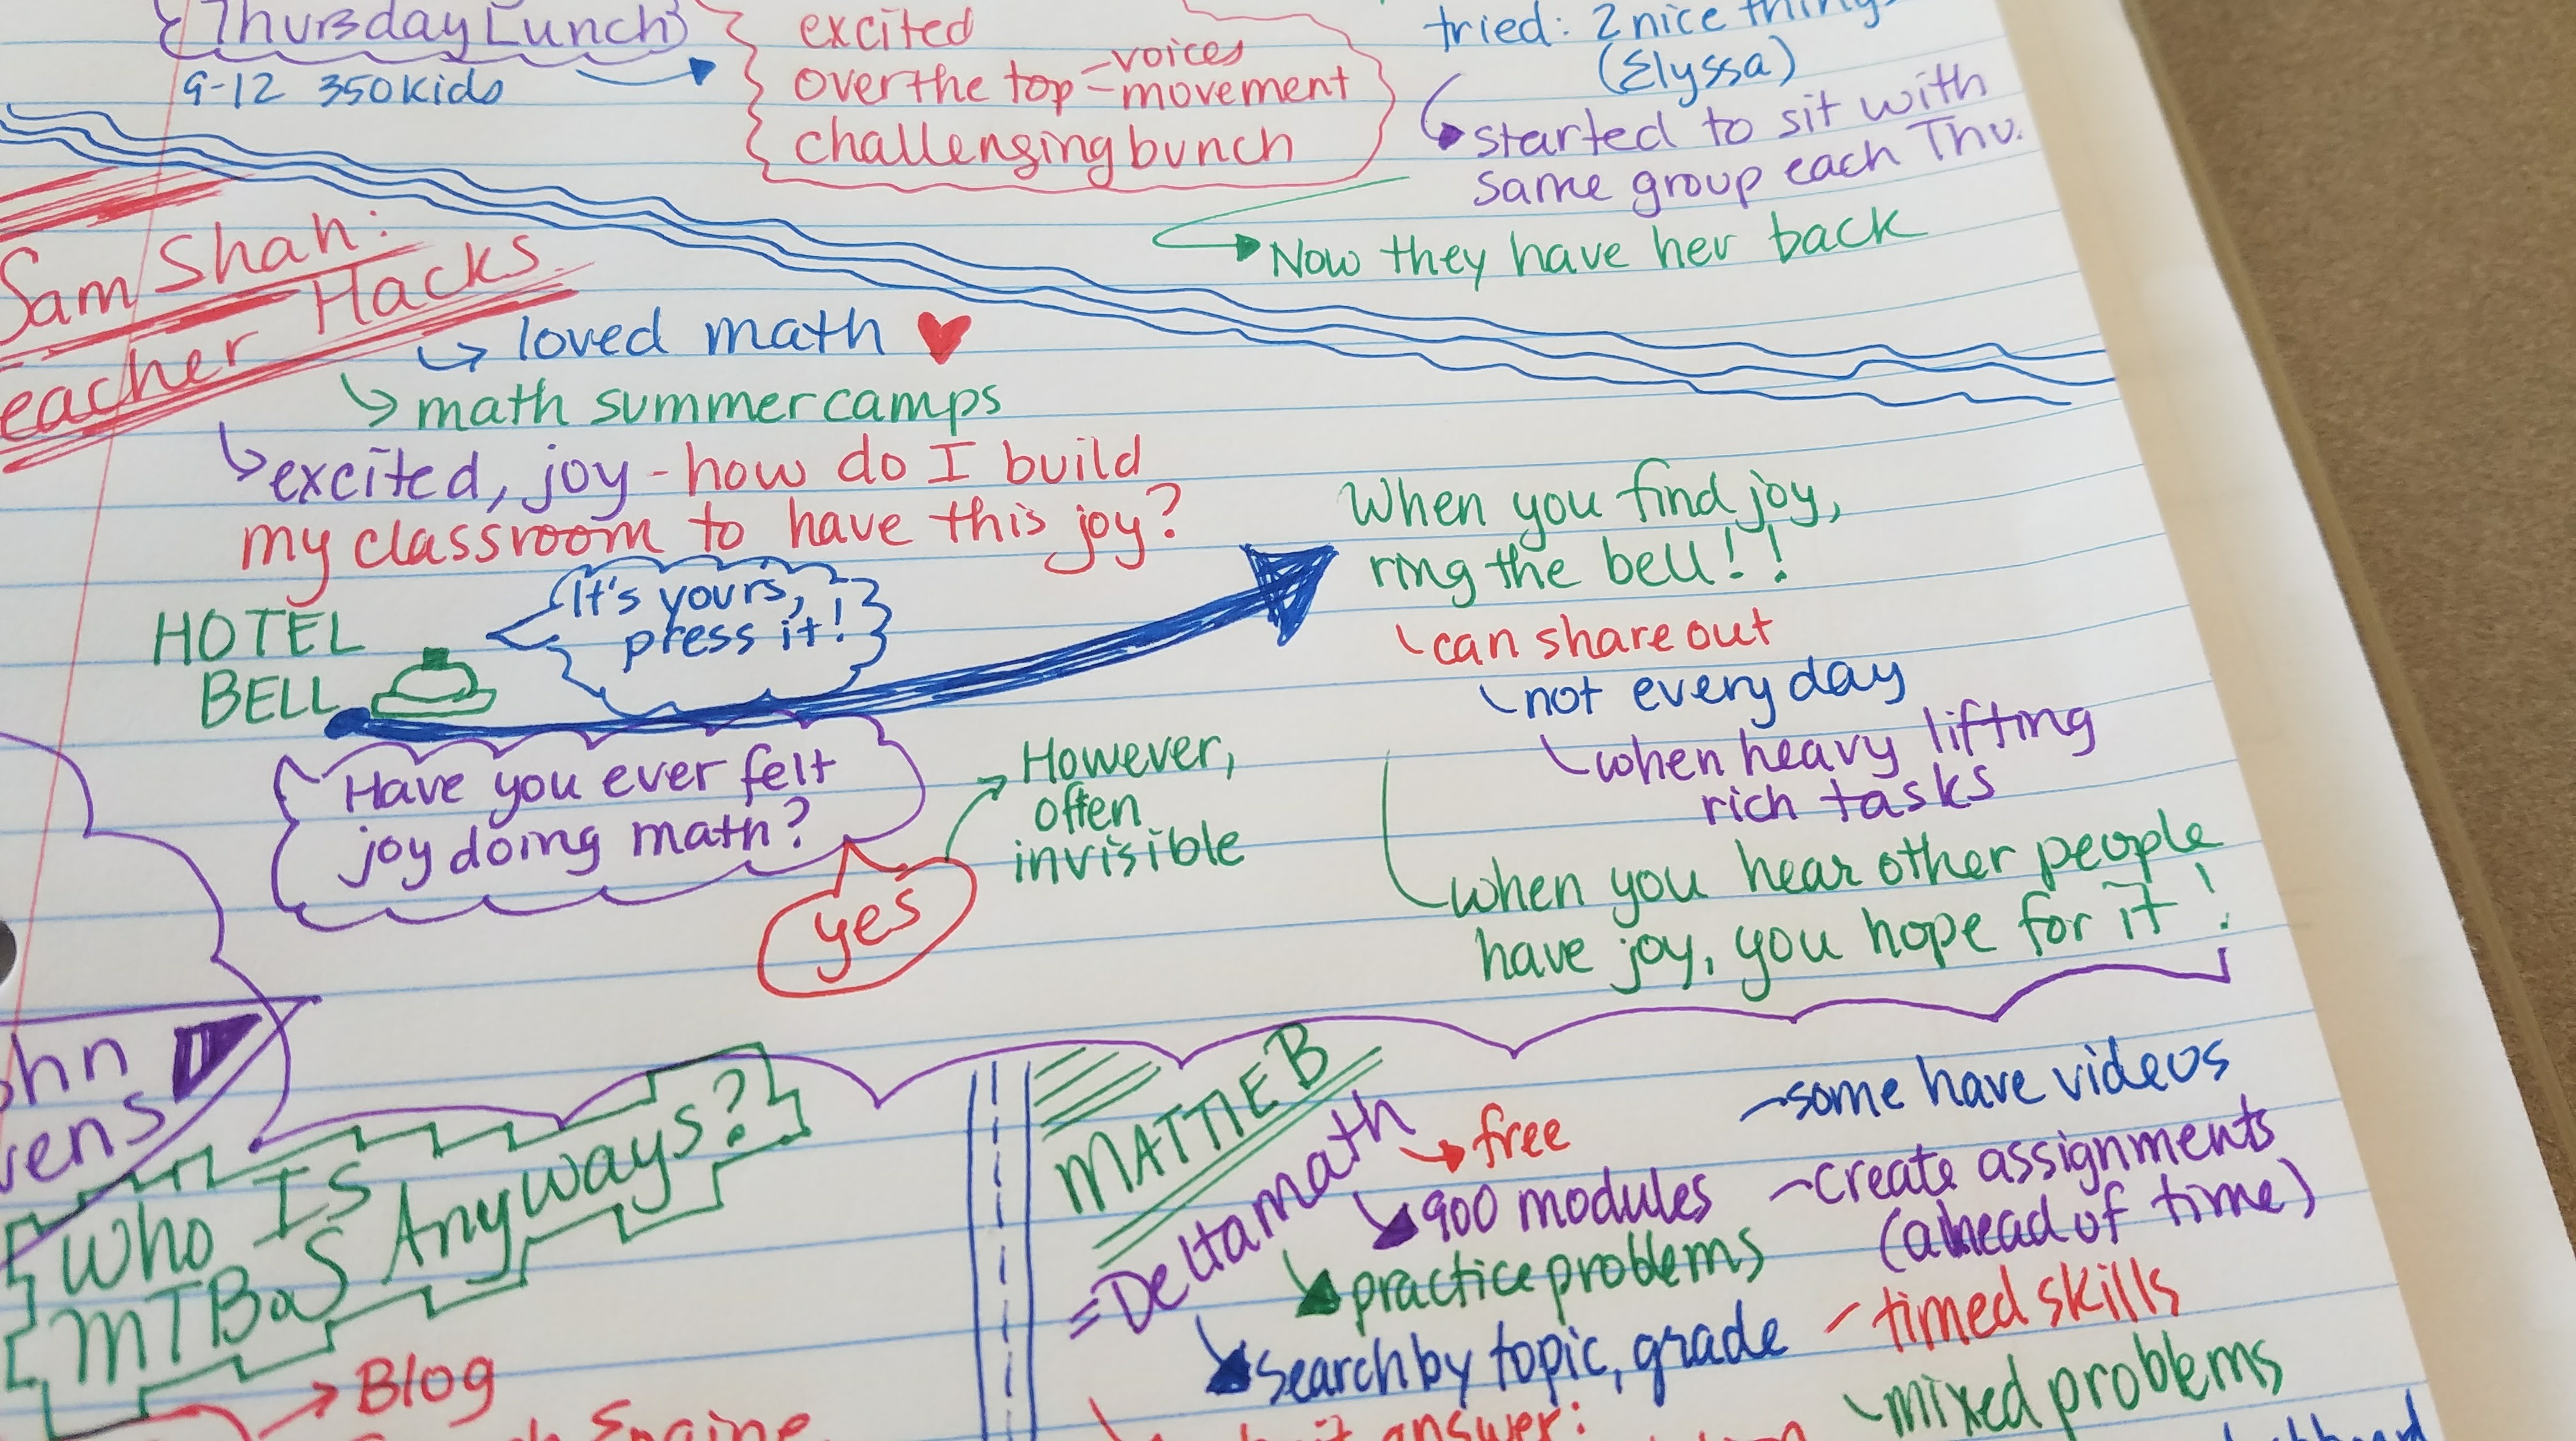 Thursday Lunch
9-12 350 kids
excited
over the top - voices
- movement
challenging bunch
tried: 2 nice things
(Elyssa)
started to sit with
same group each Thu.
Now they have her back
Sam Shah:
eacher Hacks
loved math
math summer camps
excited, joy - how do I build
my classroom to have this joy?
HOTEL
BELL
It's yours,
press it!
When you find joy,
ring the bell!!
can share out
not every day
when heavy lifting
rich tasks
when you hear other people
have joy, you hope for it!
Have you ever felt
joy doing math?
yes
However,
often
invisible
hn
vens
Who Is
MTBoS Anyways?
Blog
Engine
MATTIE B
Deltamath
free
900 modules
practice problems
search by topic, grade
answer:
- some have videos
- create assignments
(ahead of time)
- timed skills
- mixed problems